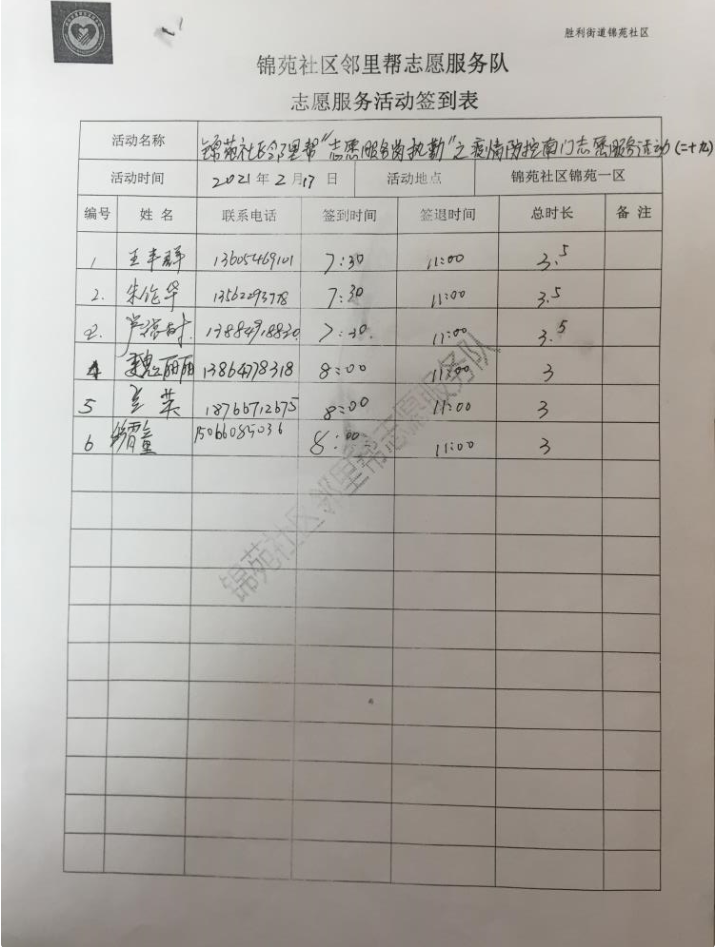 胜利街道锦苑社区
锦苑社区邻里帮志愿服务队
志愿服务活动签到表
活动名称 锦苑社区邻里帮"志愿服务岗执勤"之疫情防控南门志愿服务活动(二十九)
活动时间 2021年2月17日 活动地点 锦苑社区锦苑一区
编号 姓名 联系电话 签到时间 签退时间 总时长 备注
1 王丰群 13605469101 7:30 11:00 3.5
2. 朱作华 13562293778 7:30 11:00 3.5
2. 13884918830 7:30. 11:00 3.5
4 魏丽丽 13864778318 8:00 11:00 3
5 18766712675 8:00 11:00 3
6 15066085036 8:00 11:00 3
锦苑社区邻里帮志愿服务队